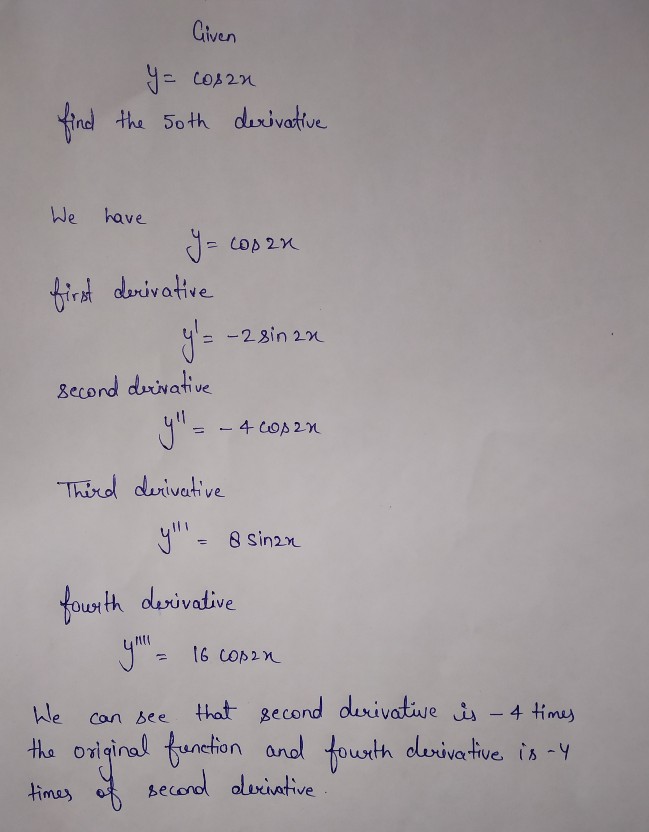 Given
y = cos2x
find the 50th derivative
We have
y = cos2x
first derivative
y' = -2 sin 2x
second derivative
y'' = - 4 cos2x
Third derivative
y''' = 8 sin2x
fourth derivative
y'''' = 16 cos2x
We can see that second derivative is - 4 times
the original function and fourth derivative is -4
times of second derivative.